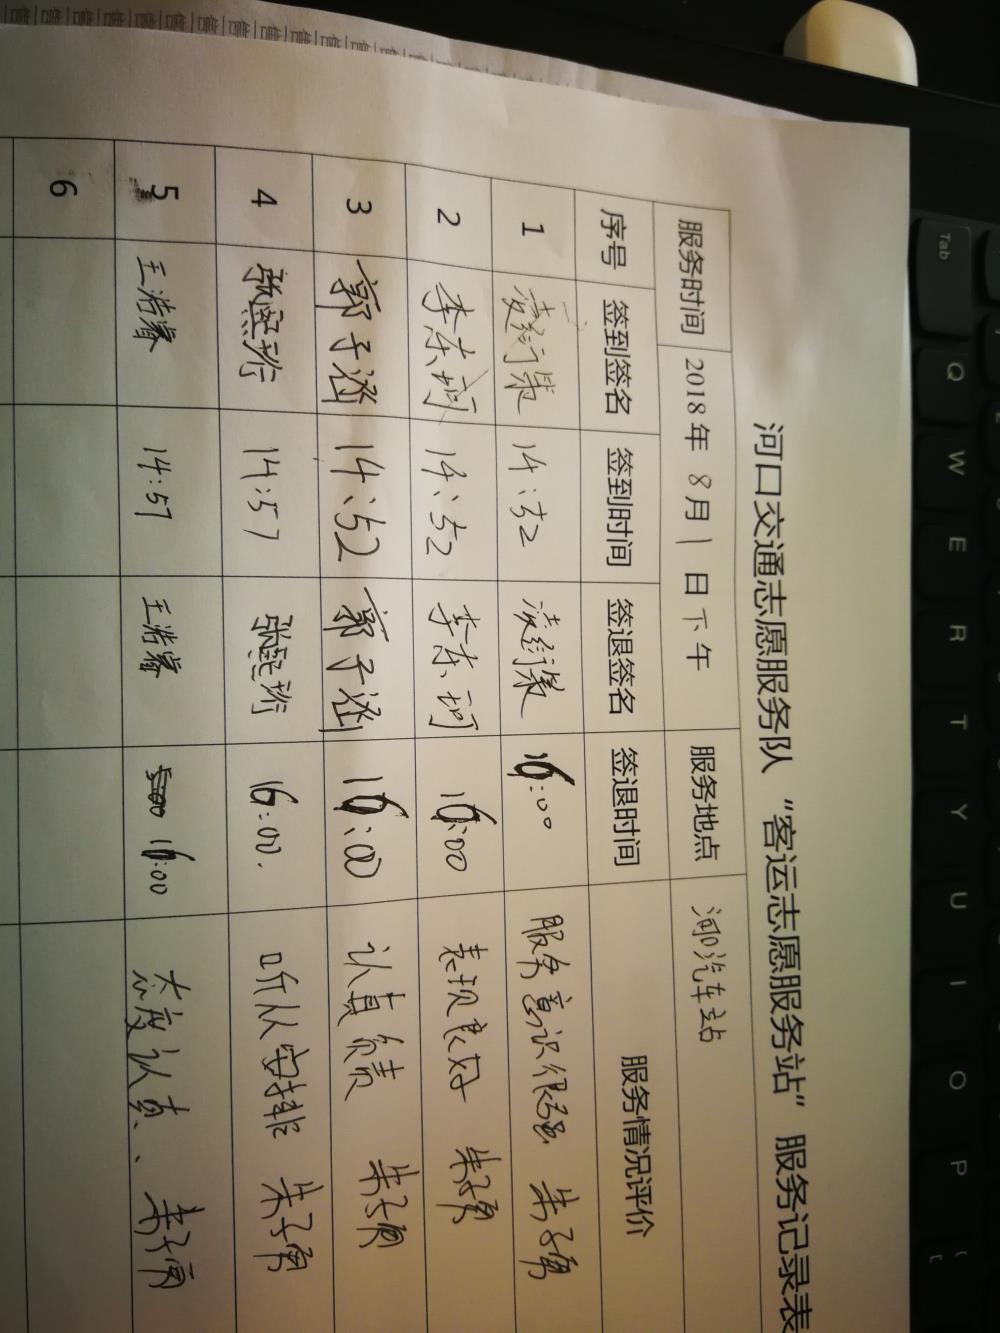 河口交通志愿服务队 “客运志愿服务站” 服务记录表
服务时间 2018年 8月 1日 下午 服务地点 河口汽车站
序号 签到签名 签到时间 签退签名 签退时间 服务情况评价
1 14:52 16:00 服务意识很强
2 李东珂 14:52 李东珂 16:00 表现良好
3 郭子涵 14:52 郭子涵 16:00 认真负责
4 张熙珩 14:57 张熙珩 16:00. 听从安排
5 王浩睿 14:57 王浩睿 16:00 态度认真、
6
Tab Q W E R T Y U I O P {
[